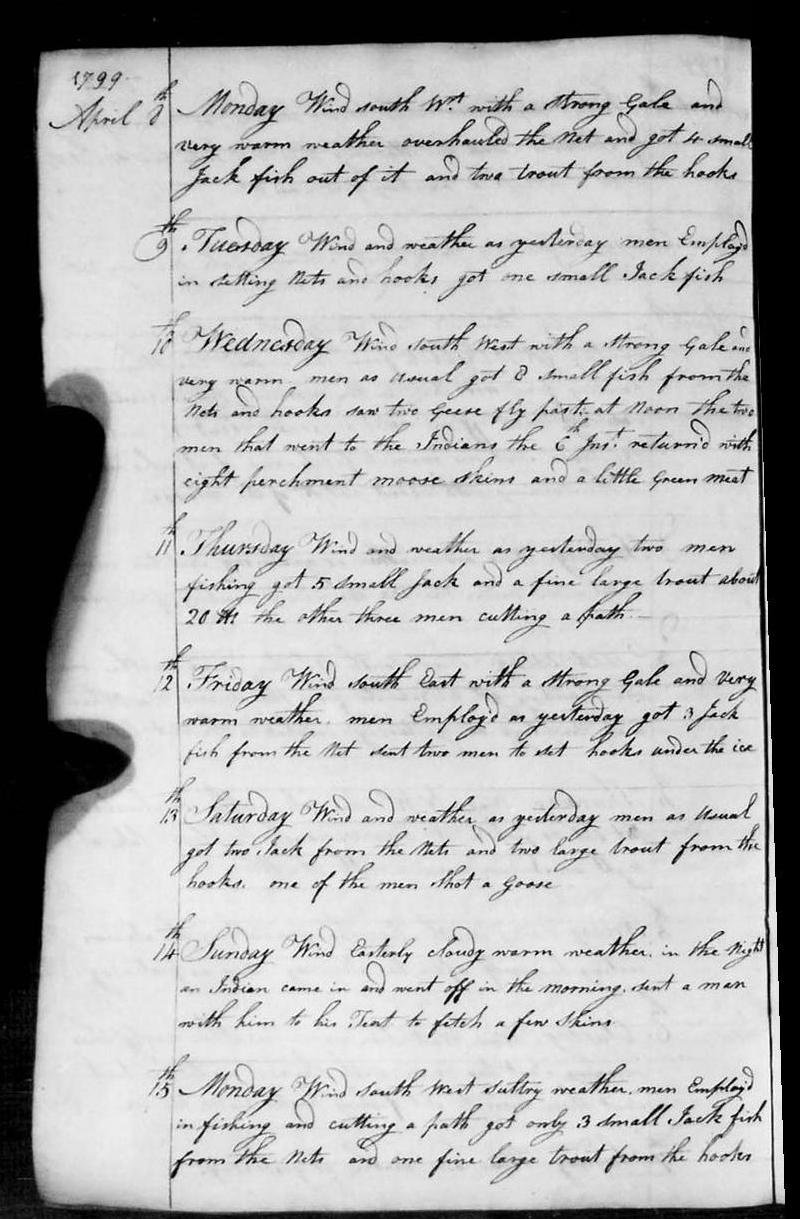 1799
April 8th Monday Wind south Wst with a strong Gale and
very warm weather overhauled the Net and got 4 small
Jack fish out of it and two trout from the hooks
9th Tuesday Wind and weather as yesterday men Employd
in setting Nets and hooks got one small Jack fish
10th Wednesday Wind south West with a strong Gale and
very warm men as usual got 8 small fish from the
Nets and hooks saw two Geese fly past. at Noon the two
men that went to the Indians the 6th Inst returnd with
eight perchment moose skins and a little Green meat
11th Thursday Wind and weather as yesterday two men
fishing got 5 small Jack and a fine large trout about
20 lbs the other three men cutting a path.—
12th Friday Wind south East with a strong Gale and very
warm weather. men Employd as yesterday got 3 Jack
fish from the Net sent two men to set hooks under the ice
13th Saturday Wind and weather as yesterday men as usual
got two Jack from the Nets and two large trout from the
hooks. one of the men shot a Goose
14th Sunday Wind Easterly cloudy warm weather. in the Night
an Indian came in and went off in the morning. sent a man
with him to his Tent to fetch a few skins
15th Monday Wind south West sultry weather. men Employd
in fishing and cutting a path got only 3 small Jack fish
from the Nets and one fine large trout from the hooks